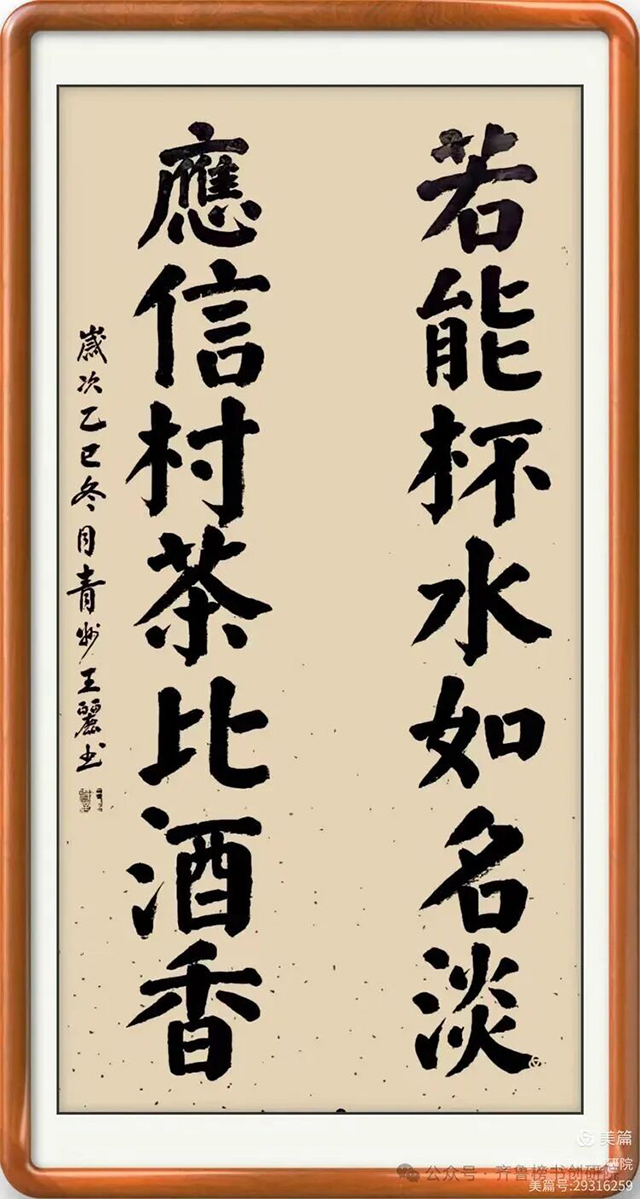 若能杯水如名淡
應信村茶比酒香
歲次乙巳冬月青州王麗书
美篇
公众号·齐鲁榜书创研院
美篇号:29316259